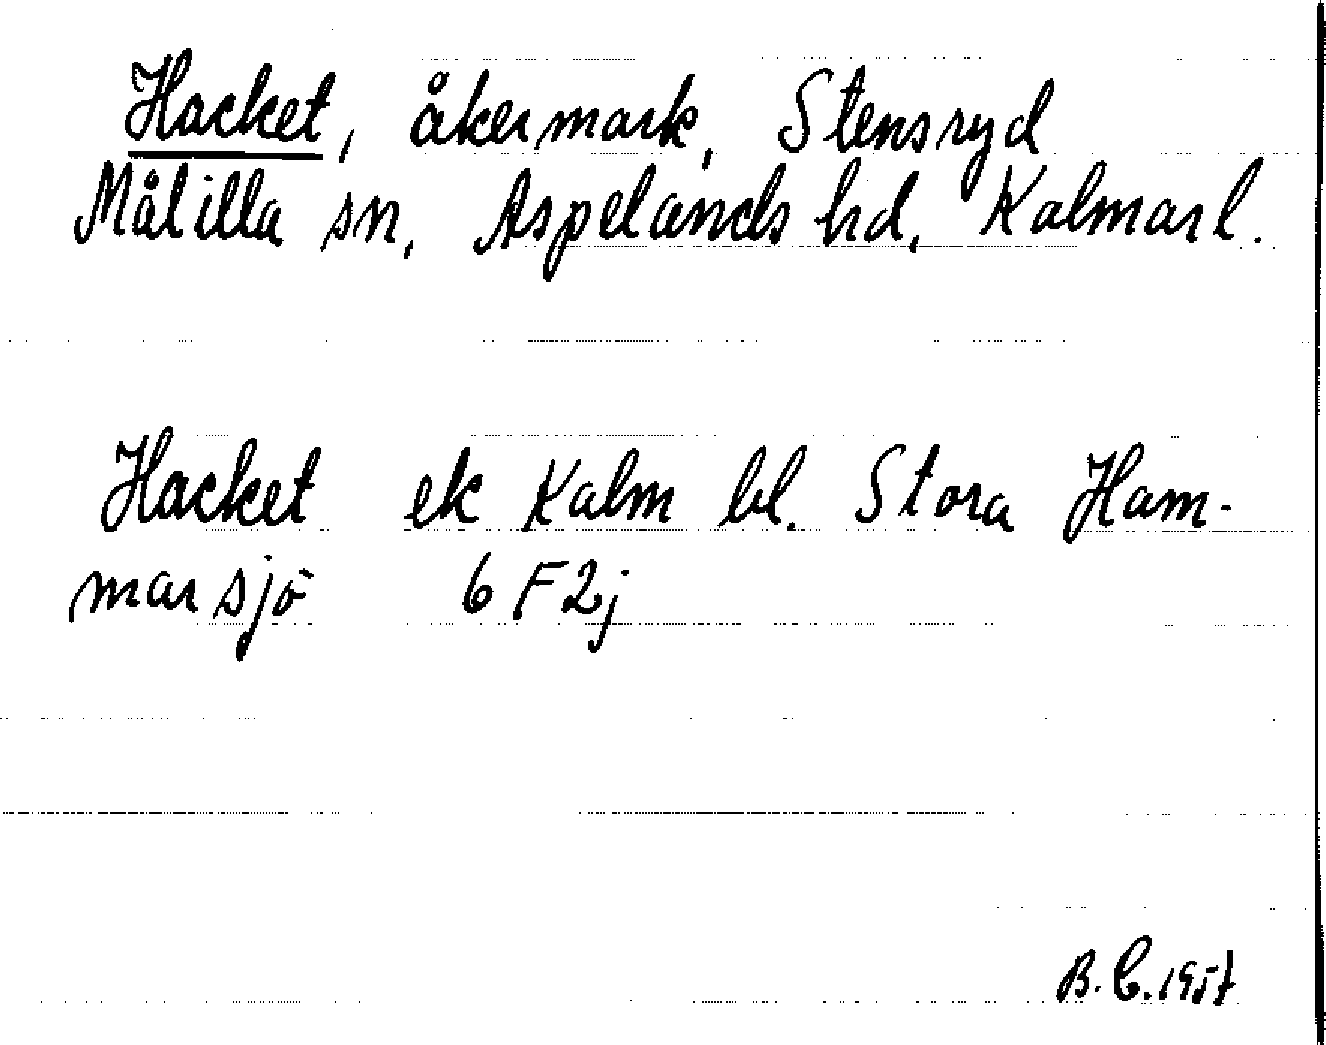 Hacket, åkermark, Stensryd
Målilla sn, Aspelands hd, Kalmar l.
Hacket ek Kalm bl. Stora Ham-
marsjö 6 F 2j
B.C. 1957